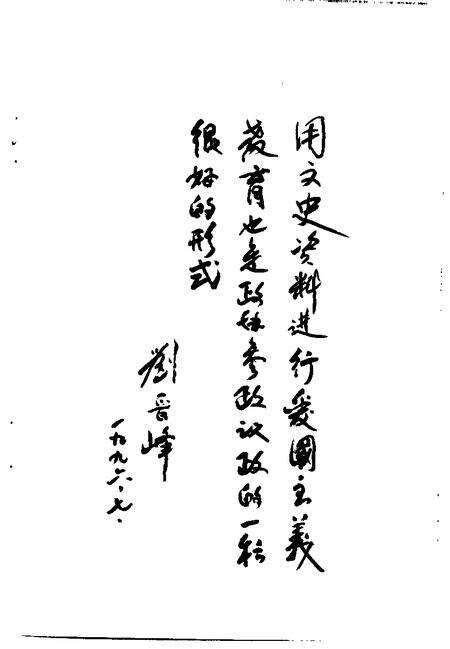 用文史资料进行爱國主義
教育也是政协参政议政的一种
很好的形式
劉晋峰
一九九六·七·